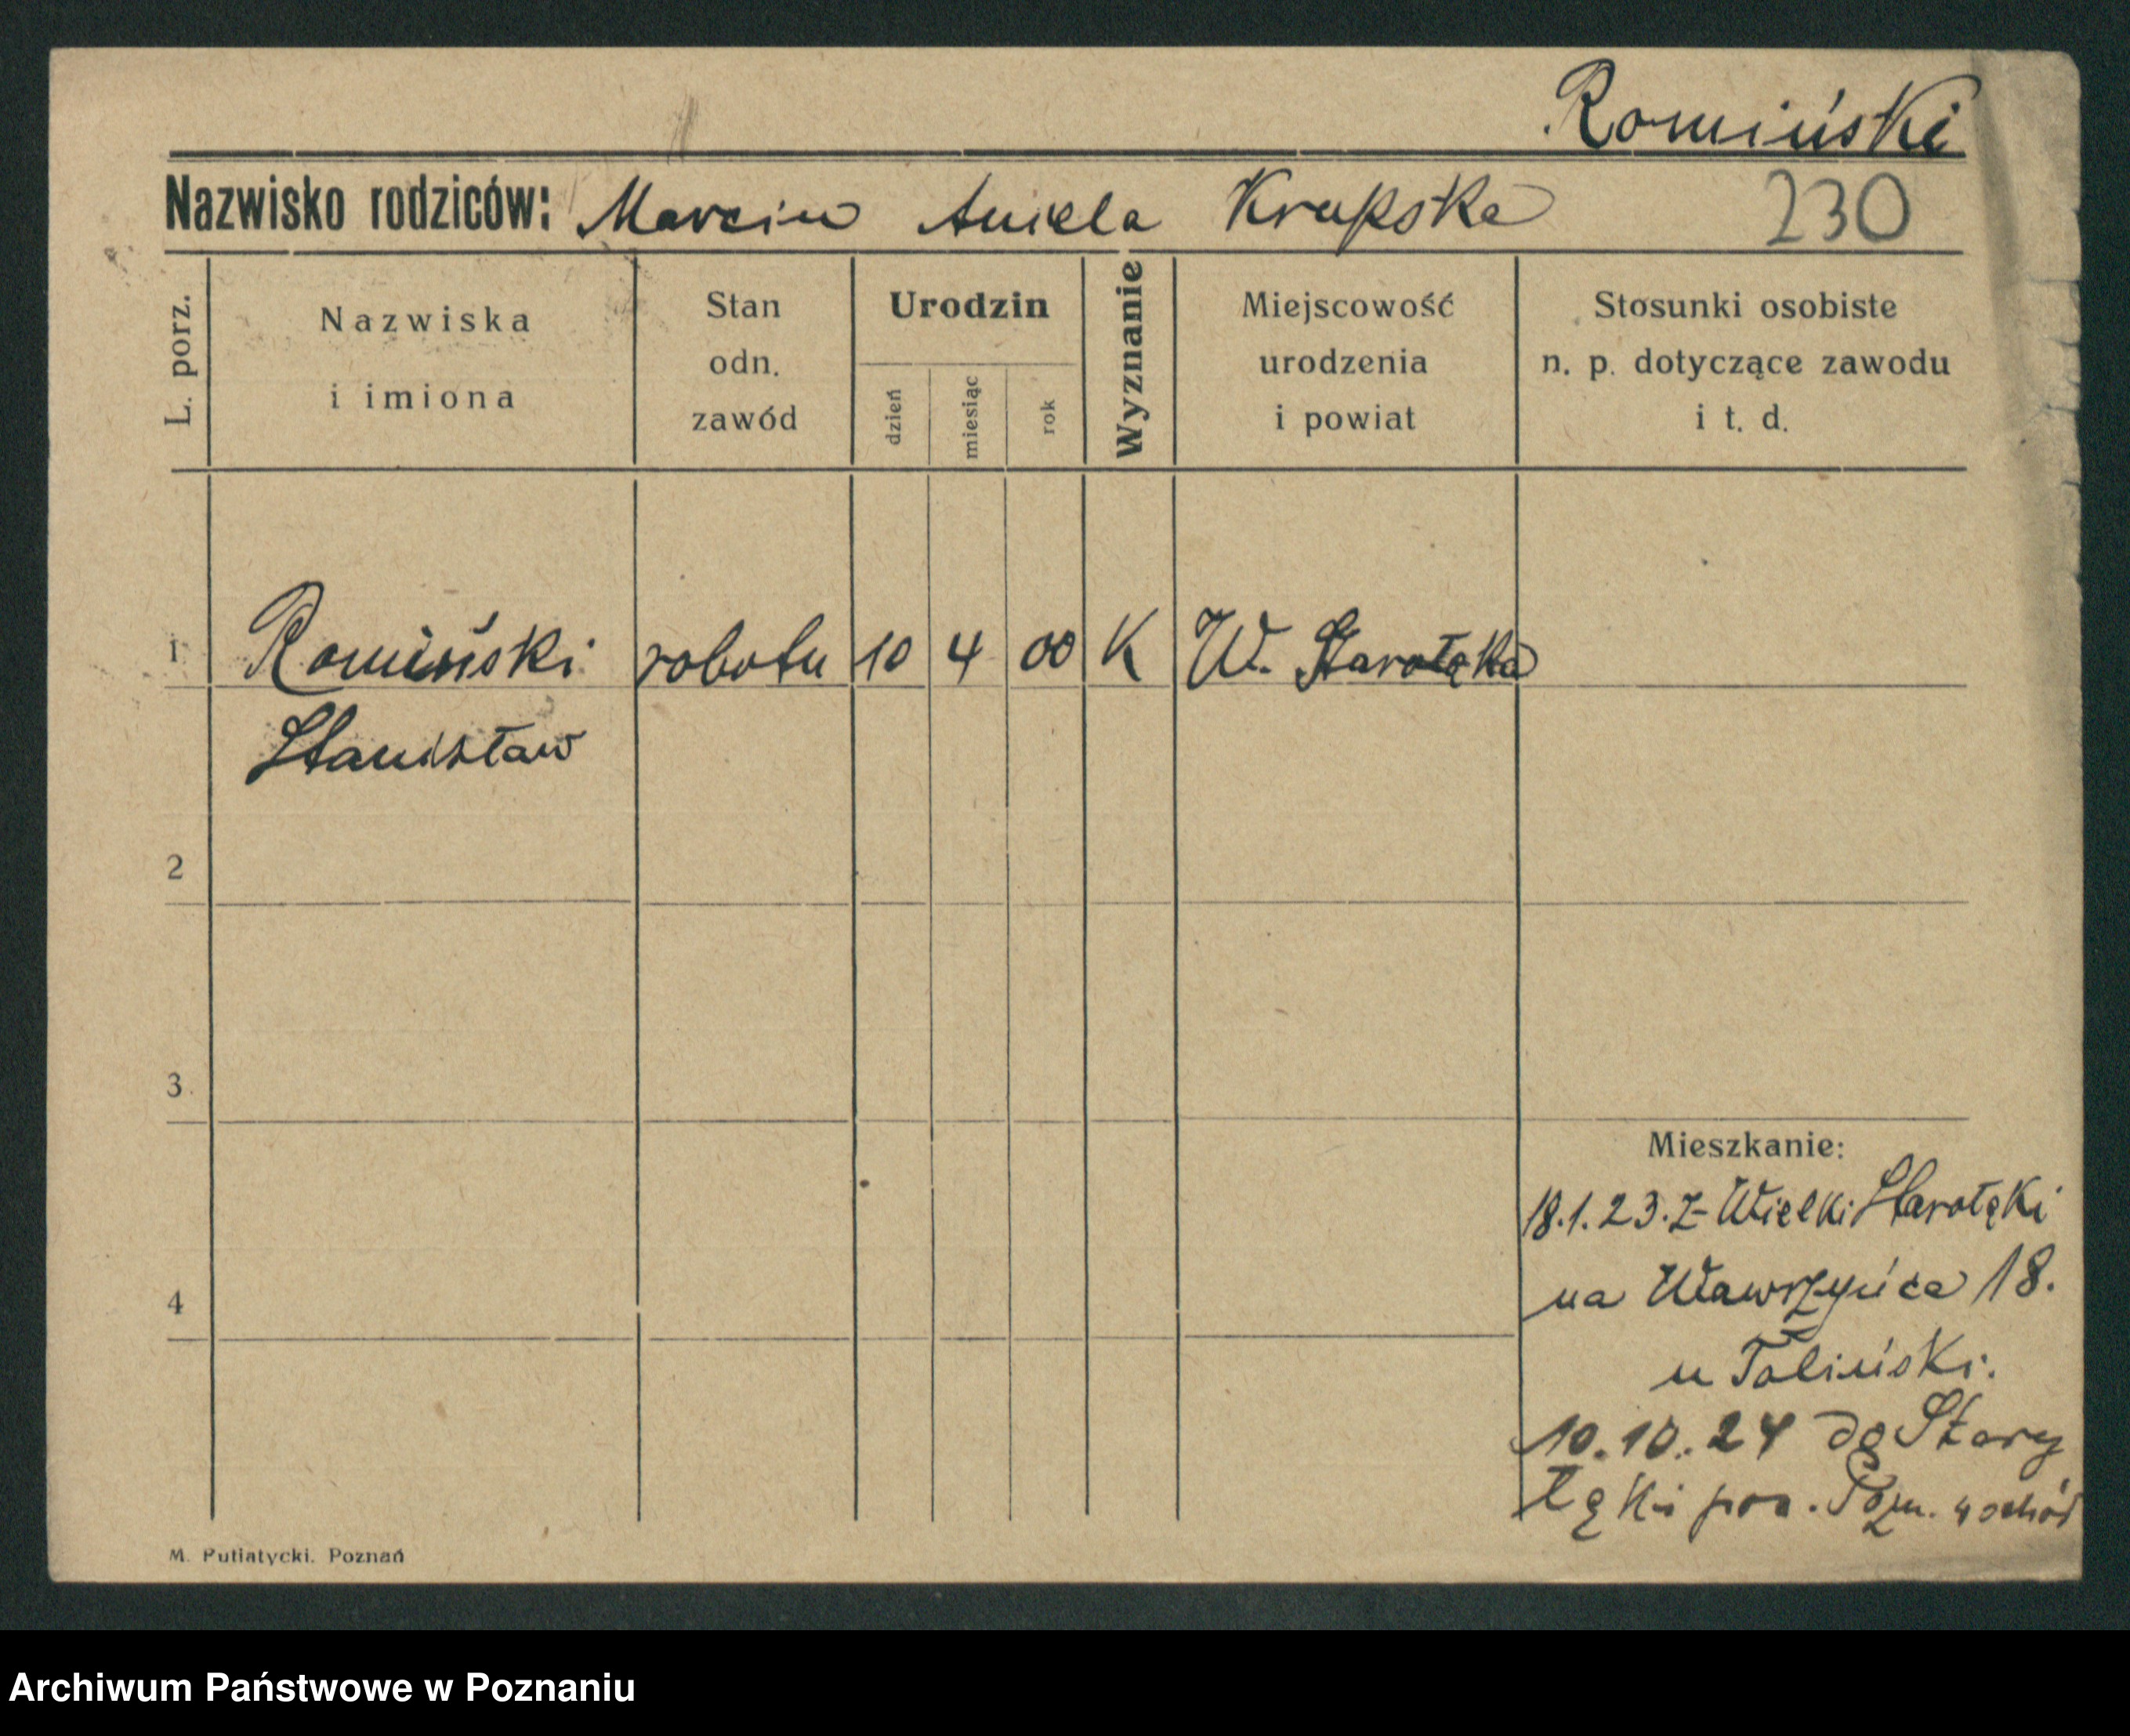 Romiński
Nazwisko rodziców: Marcin Aniela Krupska 230
L. porz.
Nazwiska
i imiona
Stan
odn.
zawód
Urodzin
dzień
miesiąc
rok
Wyznanie
Miejscowość
urodzenia
i powiat
Stosunki osobiste
n. p. dotyczące zawodu
i t. d.
1 Romiński robotn 10 4 00 K W. Starołęka
Stanisław
2
3
4
Mieszkanie:
18.1.23. z Wielki Starołęki
na Wawrzyńca 18.
u Toliński.
10.10.24 do Staro
łęki pow. Pozn. wschód
M. Putiatycki. Poznań
Archiwum Państwowe w Poznaniu